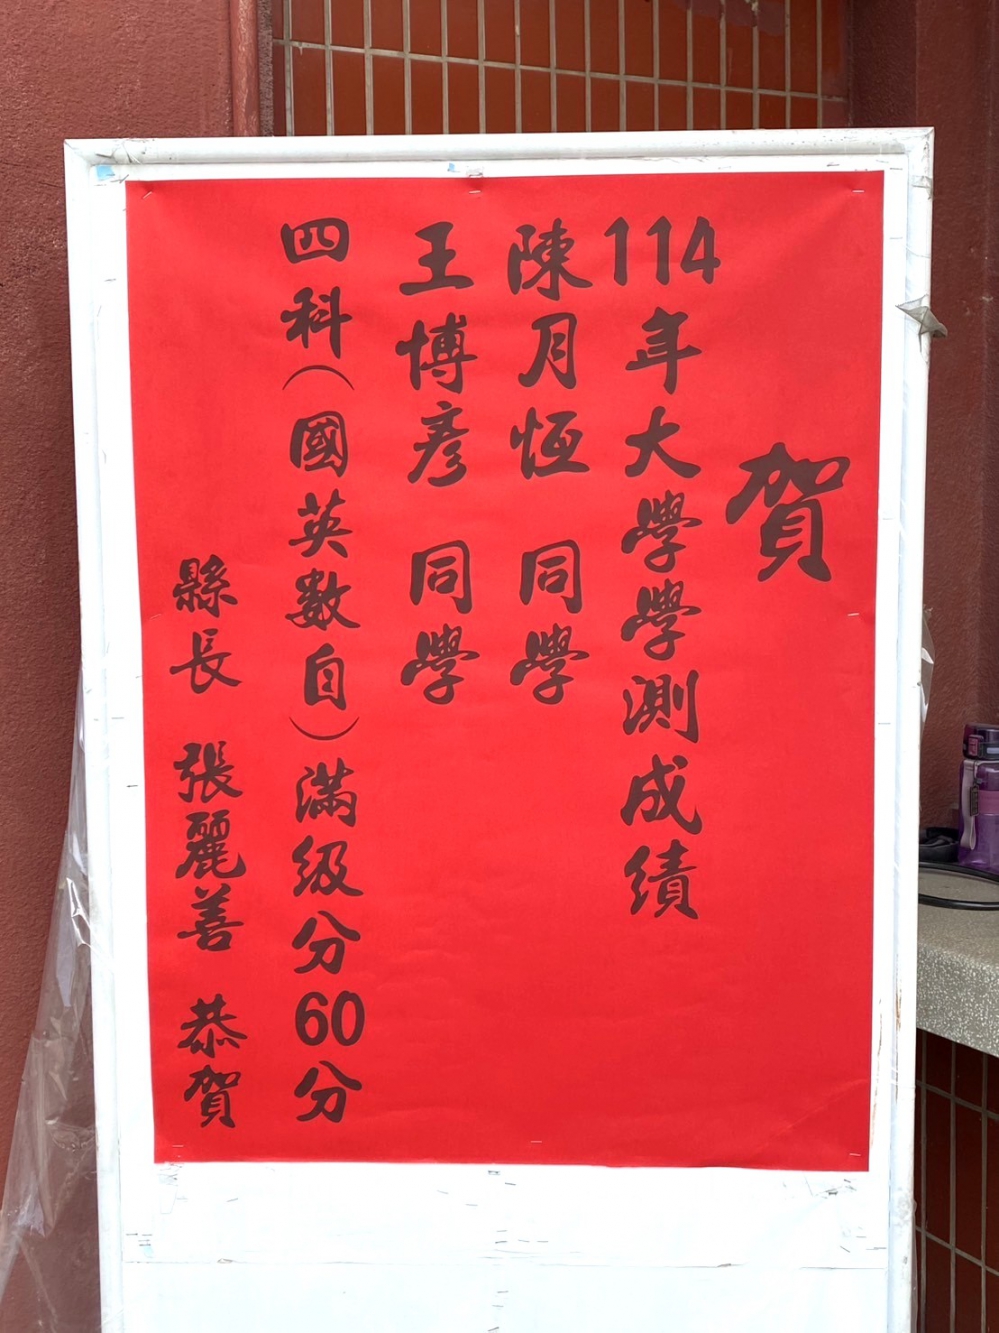 賀
114年大學學測成績
陳月恆 同學
王博彥 同學
四科(國英數自)滿級分60分
縣長 張麗善 恭賀